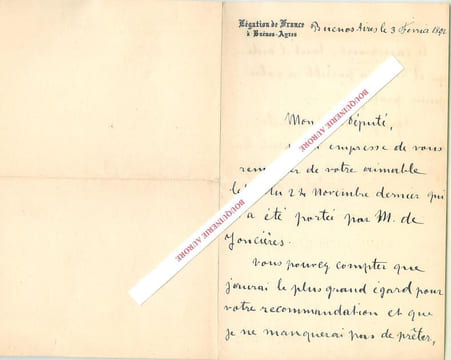 Légation de France
à Buénos-Ayres
Buenos Aires le 3 Février 1892
Mon Député,
empresse de vous
de votre aimable
du 24 Novembre dernier qui
a été portée par M. de
Joncières.
Vous pouvez compter que
j'aurai le plus grand égard pour
votre recommandation et que
je ne manquerai pas de prêter,
BOUQUINERIE AURORE
BOUQUINERIE AURORE
BOUQUINERIE AURORE